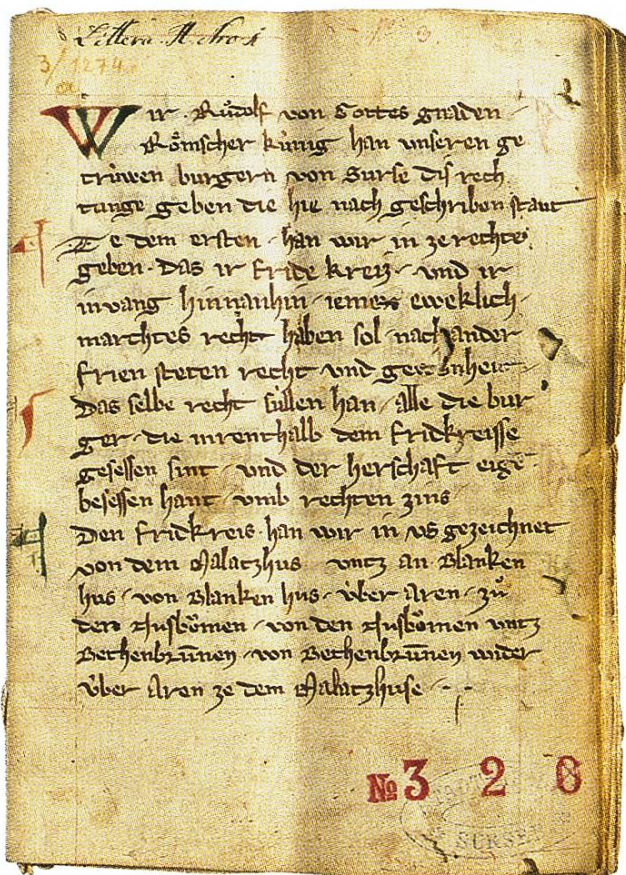 Littera A Nro 1
3/1274
Wir · Růdolf von Gottes gnaden
Rômscher kúnig han vnseren ge
trúwen burgern von Surse dis rech
tunge geben die hie nach geschriben stant
Ze dem ersten · han wir in ze rechte
geben · Das ir fride kreiz · vnd ir
invang hinnanhin · iemer eweklich ·
marchtes recht haben sol · nach ander
frien steten recht vnd gewonheit ·
Das selbe recht súllen han · alle die bur
ger · die inrenthalb dem fridkreisse
gesessen sint · vnd der herschaft eige
besessen hant · vmb rechten zins ·
Den fridkreis han wir in vs gezeichnet
von dem Malatzhus vntz an Blanken
hus · von Blanken hus · úber Aren · zů
den Nusbômen · von den Nusbômen vntz
Bechenbrunnen · von Bechenbrunnen wider
úber Aren ze dem Malatzhuse ·
№ 3 2 6
SURSEE